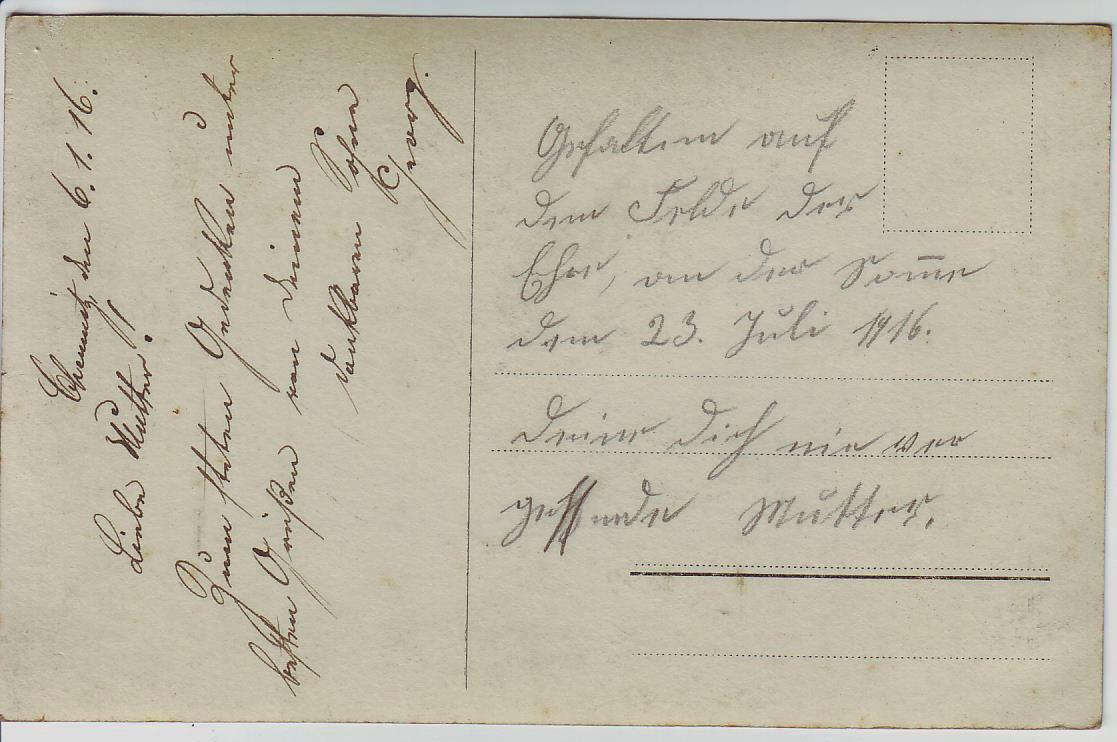 Chemnitz, den 6.1.16.
Liebe Mutter!
Zum steten Gedenken unter
besten Grüßen von deinem
dankbaren Sohne
Georg.
Gefallen auf
dem Felde der
Ehre, an der Som̅e
dem 23. Juli 1916.
Deine Dich nie ver
gessende Mutter.